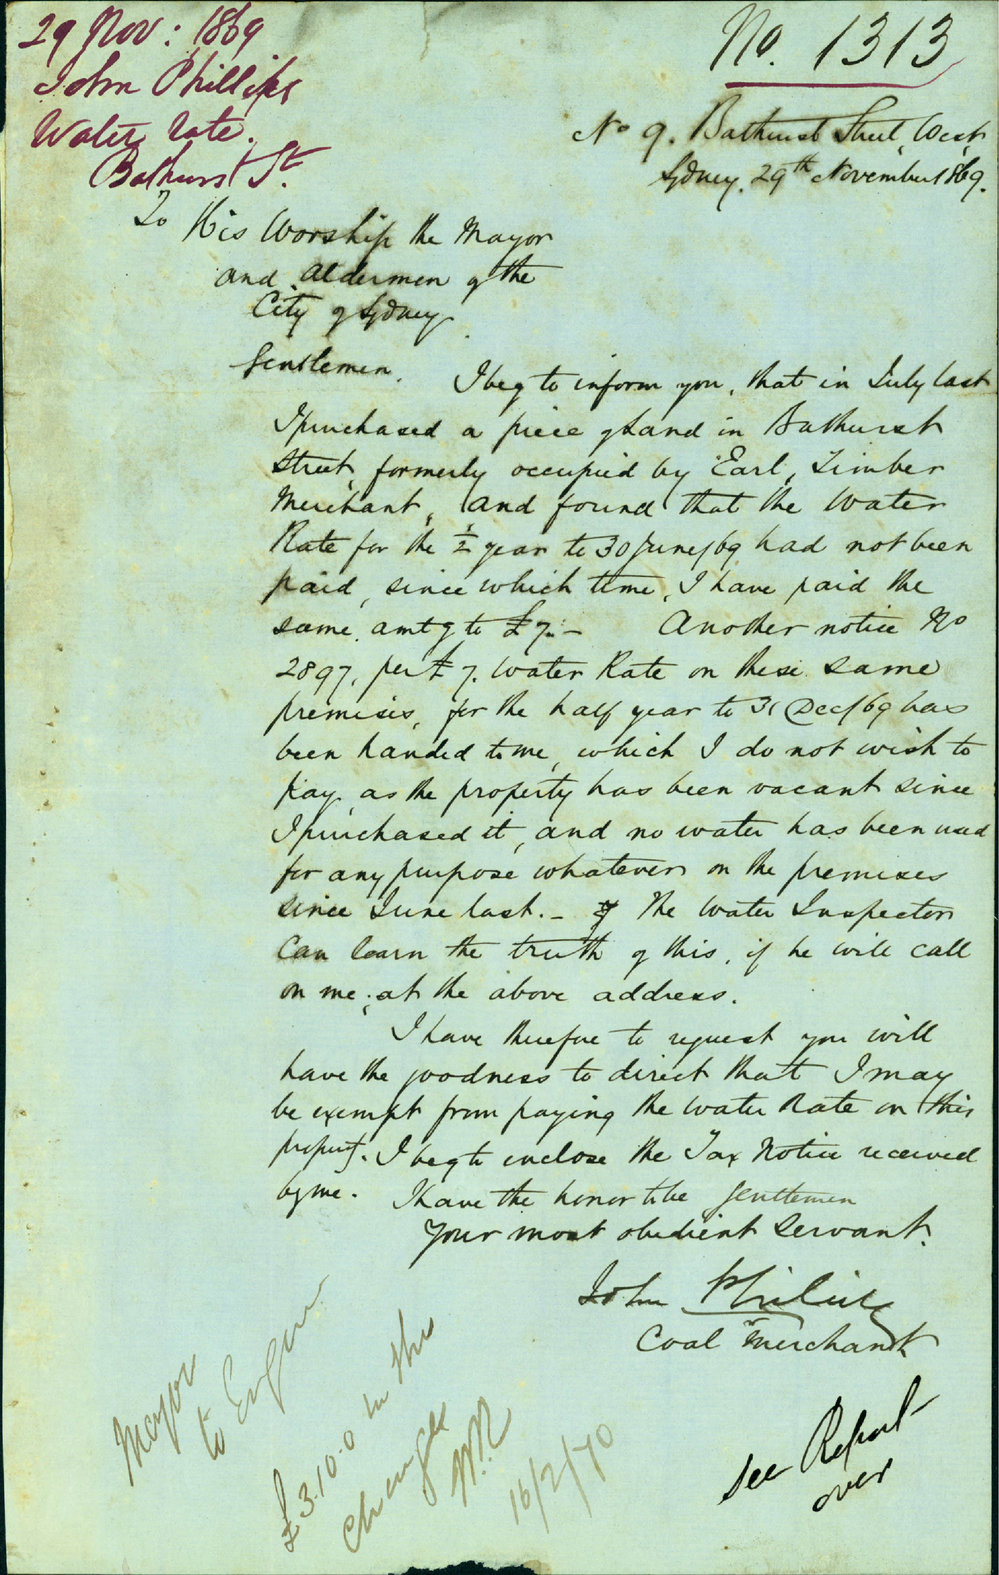 29 Nov: 1869
John Phillips
Water rate.
Bathurst St.
No. 1313
No 9. Bathurst Street, West
Sydney. 29th November 1869.
To His Worship the Mayor
and Aldermen of the
City of Sydney
Gentlemen. I beg to inform you, that in July last
I purchased a piece of Land in Bathurst
Street, formerly occupied by Earl, Timber
Merchant, and found that the Water
Rate for the ½ year to 30 June/69 had not been
paid, since which time, I have paid the
same, amtg to £7.-  Another notice No
2897, per £7. Water Rate on these same
premises, for the half year to 31 Dec/69 has
been handed to me, which I do not wish to
pay, as the property has been vacant since
I purchased it, and no water has been used
for any purpose whatever on the premises
since June last.- The Water Inspector
can learn the truth of this, if he will call
on me, at the above address.
I have therefore to request you will
have the goodness to direct that I may
be exempt from paying the Water Rate on this
property. I beg to enclose the Tax Notice received
by me. I have the honor to be Gentlemen
Your most obedient Servant.
John Phillips
Coal Merchant
Mayor
to
£3.10.0 in this
16/2/70
See Report
over